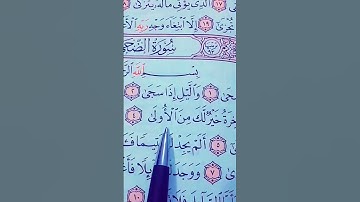 ١٧ ٱلَّذِى يُؤْتِى مَالَهُۥ يَتَزَكَّىٰ ١٨
تُجْزَىٰٓ ١٩ إِلَّا ٱبْتِغَآءَ وَجْهِ رَبِّهِ
سُورَةُ الضُّحَى
بِسْمِ ٱللَّهِ ٱلرَّ
حَىٰ ١ وَٱلَّيْلِ إِذَا سَجَىٰ ٢
خِرَةُ خَيْرٌ لَّكَ مِنَ ٱلْأُولَىٰ ٤
٥ أَلَمْ يَجِدْكَ يَتِيمًا فَـَٔا
٧ وَوَجَدَكَ عَآئِلًا فَأَغْ